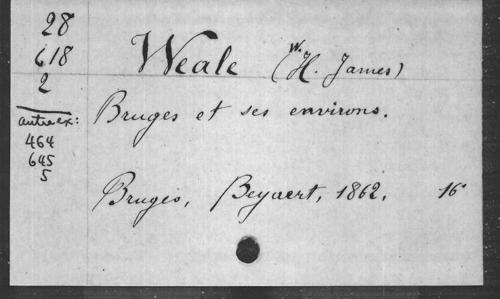 28
618
2
autre ex:
464
645
5
Weale (W. H. James)
Bruges et ses environs.
Bruges, Beyaert, 1862. 16°